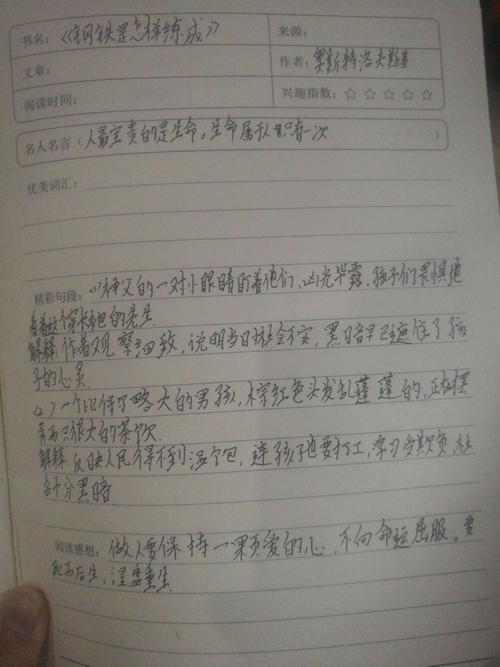 书名：《钢铁是怎样练成》
来源：
文章：
作者：奥斯特洛夫斯基
阅读时间：
兴趣指数：☆ ☆ ☆ ☆ ☆
名人名言（人最宝贵的是生命。生命属于人只有一次）
优美词汇：
精彩句段：(1)神父的一对小眼睛盯着他们，凶光毕露。孩子们畏惧地
看着这个穿长袍的先生
解释：作者观察细致，说明当日社会不安，黑暗早已遮住了孩
子的心灵
(2)一个比保尔略大的男孩，棕红色头发乱蓬蓬的，正在摆
弄两只很大的茶炊
解释：反映人民得不到温饱，连孩子也要打工，
会十分黑暗
阅读感想：做人要保持一颗爱的心，不向命运屈服。要
死而后生，涅盘重生